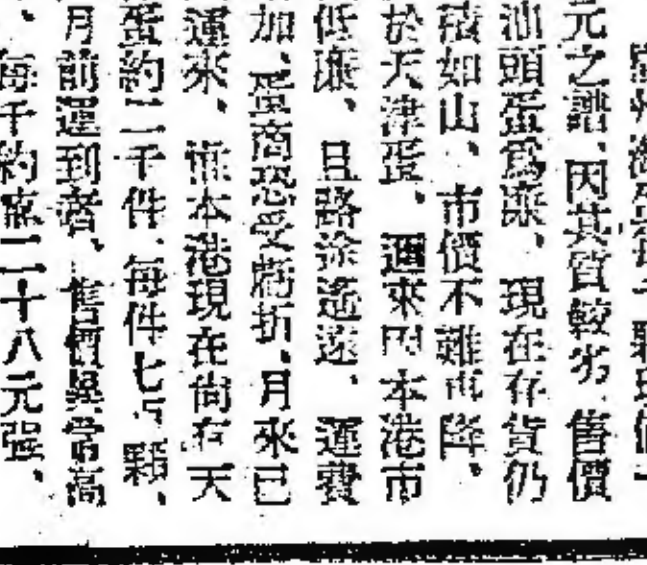 蛋
元之譜、因其質較劣、售價
汕頭蛋爲廉、現在存貨仍
積如山、市價不難再降、
於天津蛋、邇來因本港市
低廉、且路途遙遠、運費
加、蛋商恐受虧折、月來已
運來、惟本港現在尚存天
蛋約二千件、每件七百顆、
月前運到者、售價異常高
、每千約底二十八元强、